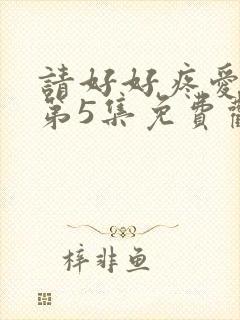 請好好疼愛
第5集免費
梓非鱼